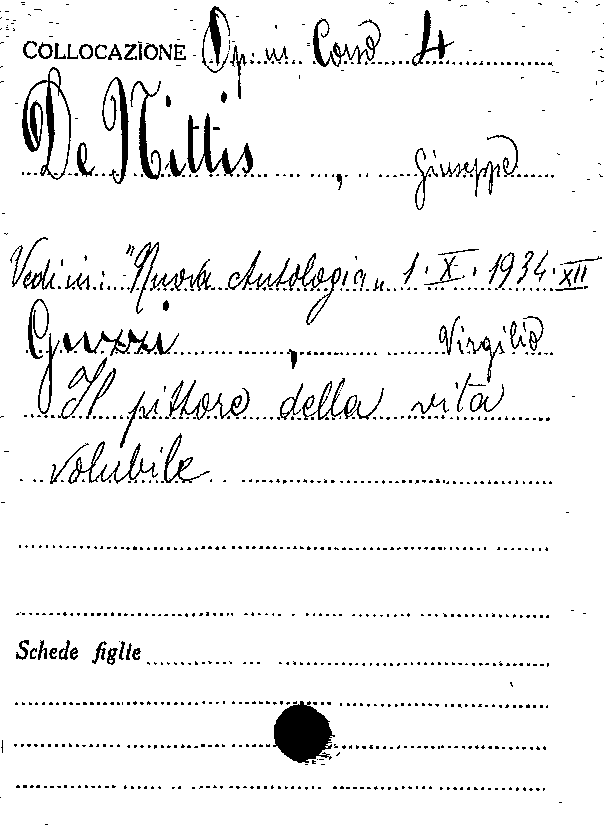 COLLOCAZIONE Op. in Corso 4
De Nittis, Giuseppe
Vedi in: "Nuova Antologia„ 1. X. 1934. XII
Guzzi, Virgilio
Il pittore della vita
volubile
Schede figlie